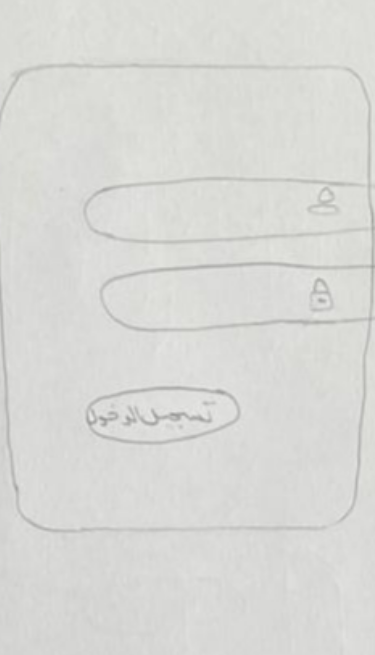 تسجيل الدخول